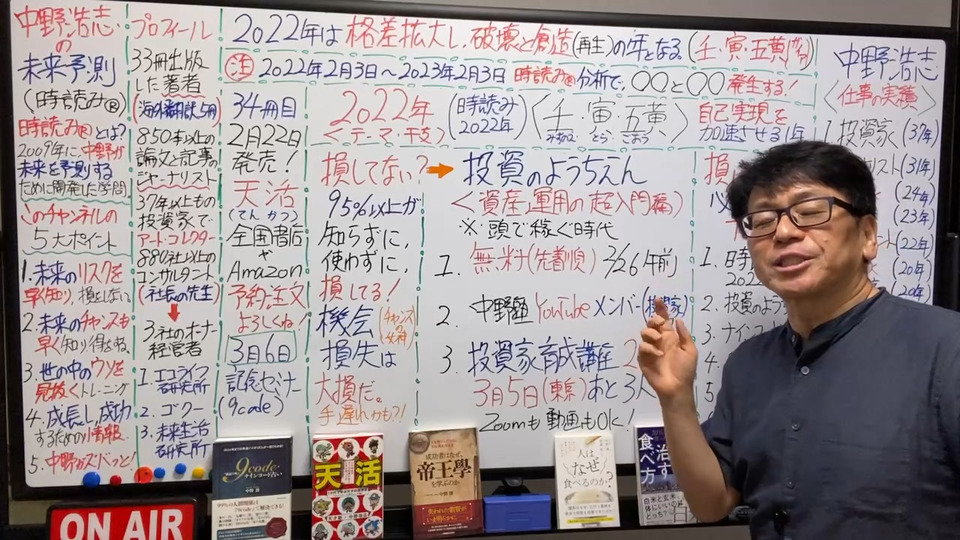 中野浩志
の
未来予測
(時読み®)
時読み®とは?
2009年に、中野が
未来を予測する
ために開発した学問
このチャンネルの
5大ポイント
1.未来のリスクを
早く知り、損しない
2.未来のチャンスも
早く知り得をする
3.世の中のウソを
見抜くトレーニング
4.成長し、成功
するための情報
5.中野がズバっと!
プロフィール
33冊出版
した著者
(海外翻訳5冊)
850本以上の
論文と記事の
ジャーナリスト
37年以上もの
投資家で
アート・コレクター
880社以上の
コンサルタント
(社長の先生)
3社のオーナー
経営者
1.エコライフ
研究所
2.ゴクー
3.未来生活
研究所
2022年は格差拡大し、破壊と創造(再生)の年となる(壬・寅・五黄)
注 2022年2月3日~2023年2月3日 時読み®分析で、〇〇と〇〇発生する!
34冊目
2月22日
発売!
天活
(てんかつ)
全国書店
や
Amazon
予約注文
よろしくね!
3月6日
記念セミナー
(9code)
2022年
<テーマ・干支>
(時読み
2022年)
<壬・寅・五黄>
みずのえ とら ごおう
自己実現を
加速させる1年
損してない?
95%以上が
知らずに、
使わずに、
損してる!
機会
損失は
大損だ。
手遅れかも?!
投資のようちえん
<資産運用の超入門編>
※頭で稼ぐ時代
1.無料(先着順) 2/26午前
2.中野塾YouTubeメンバー
3.投資家育成難
3月5日(東京)あと3人
Zoomも動画もOk!
損
1.時
2.投資のよう
3.ナインコ
4
5
中野浩志
<仕事の実績>
1.投資家(37年)
(31年)
(24年)
(23年)
(22年)
(20年)
(20年)
ON AIR
9code
ナインコード占い
天活
成功者はなぜ、
帝王學
を学ぶのか
失われた叡智が
いま明らかに
人は
なぜ
食べるのか?
治す
食べ方
白米と玄米、
体にいいのは
どっち?